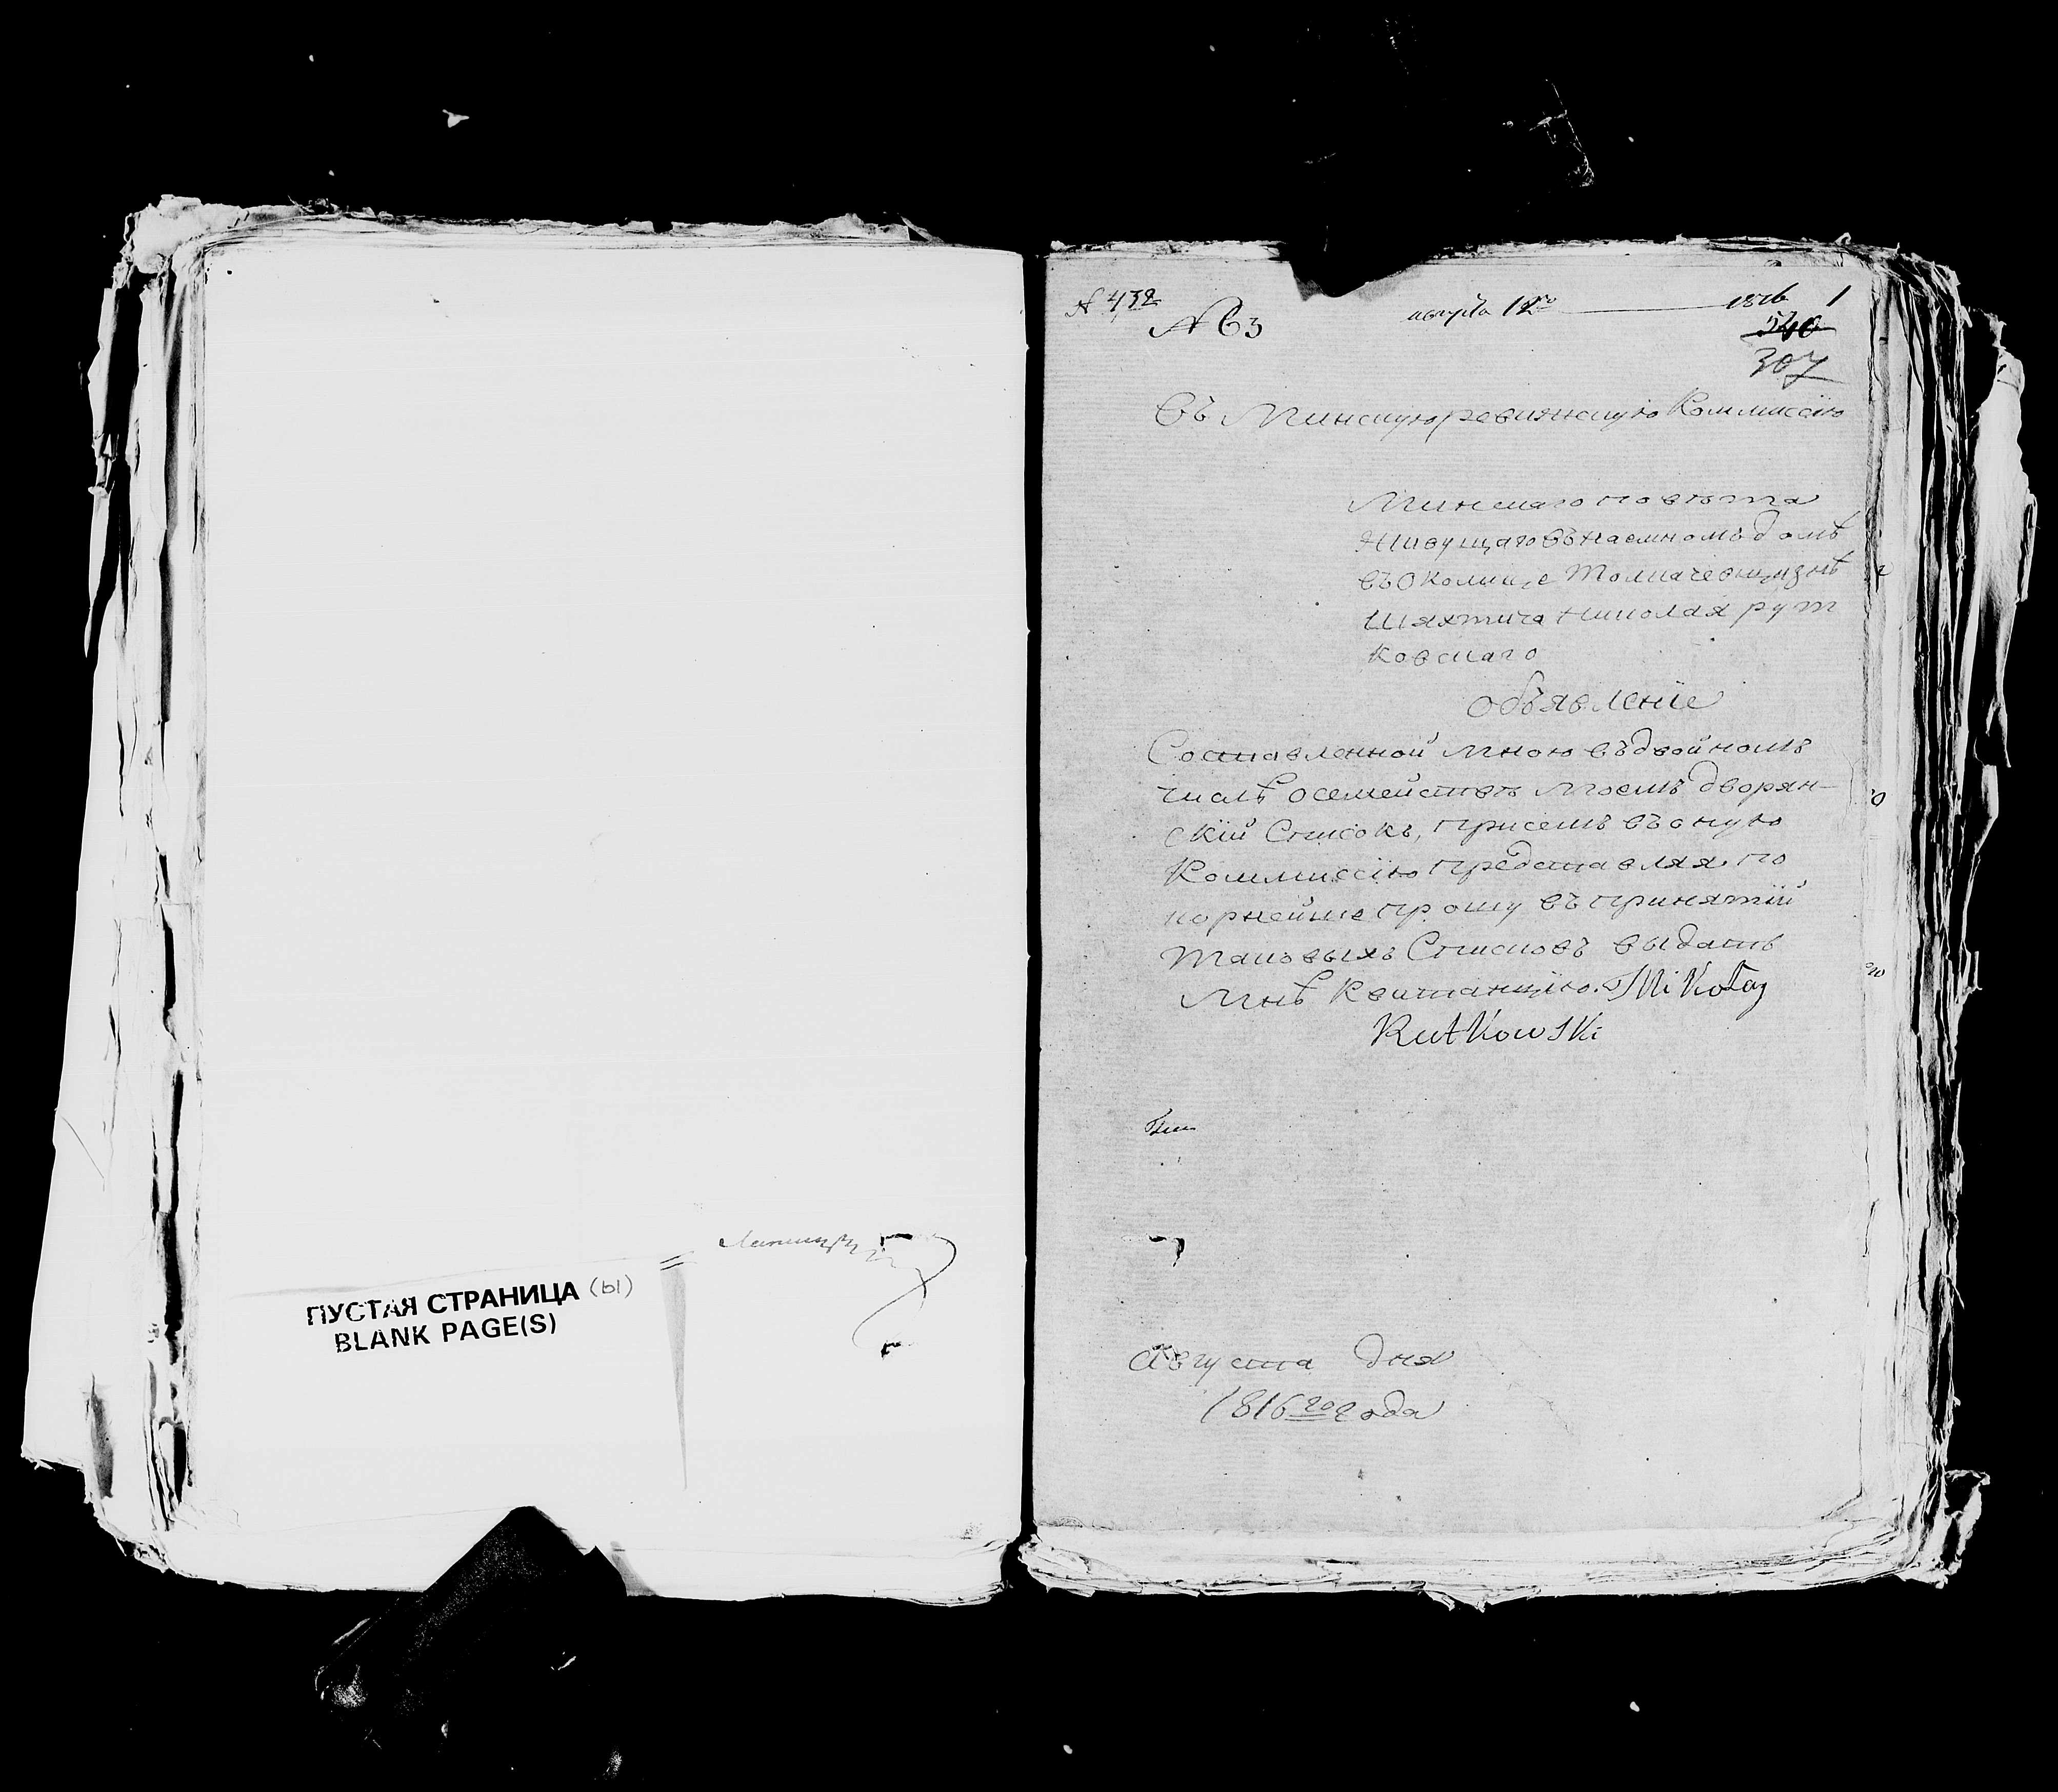 ПУСТАЯ СТРАНИЦА (ы)
BLANK PAGE(S)
№ 432
№ 63
августа 12го 1816 1
540
307
Въ Минскую ревизскую Коммиссію
Минскаго повѣта
Живущаго въ наемномъ домѣ
въ Околице Толкачевщизнѣ
Шляхтича Николая рут
ковскаго
Объявленіе
Составленной мною въ двойномъ
числѣ о семействѣ моемъ дворян-
скій Списокъ, присемъ въ оную
Коммиссію представляя по
корнейше прошу въ принятіи
таковыхъ Списковъ выдать
мнѣ Квитанцію. Mikołay
Rutkowski
Августа дня
1816го года